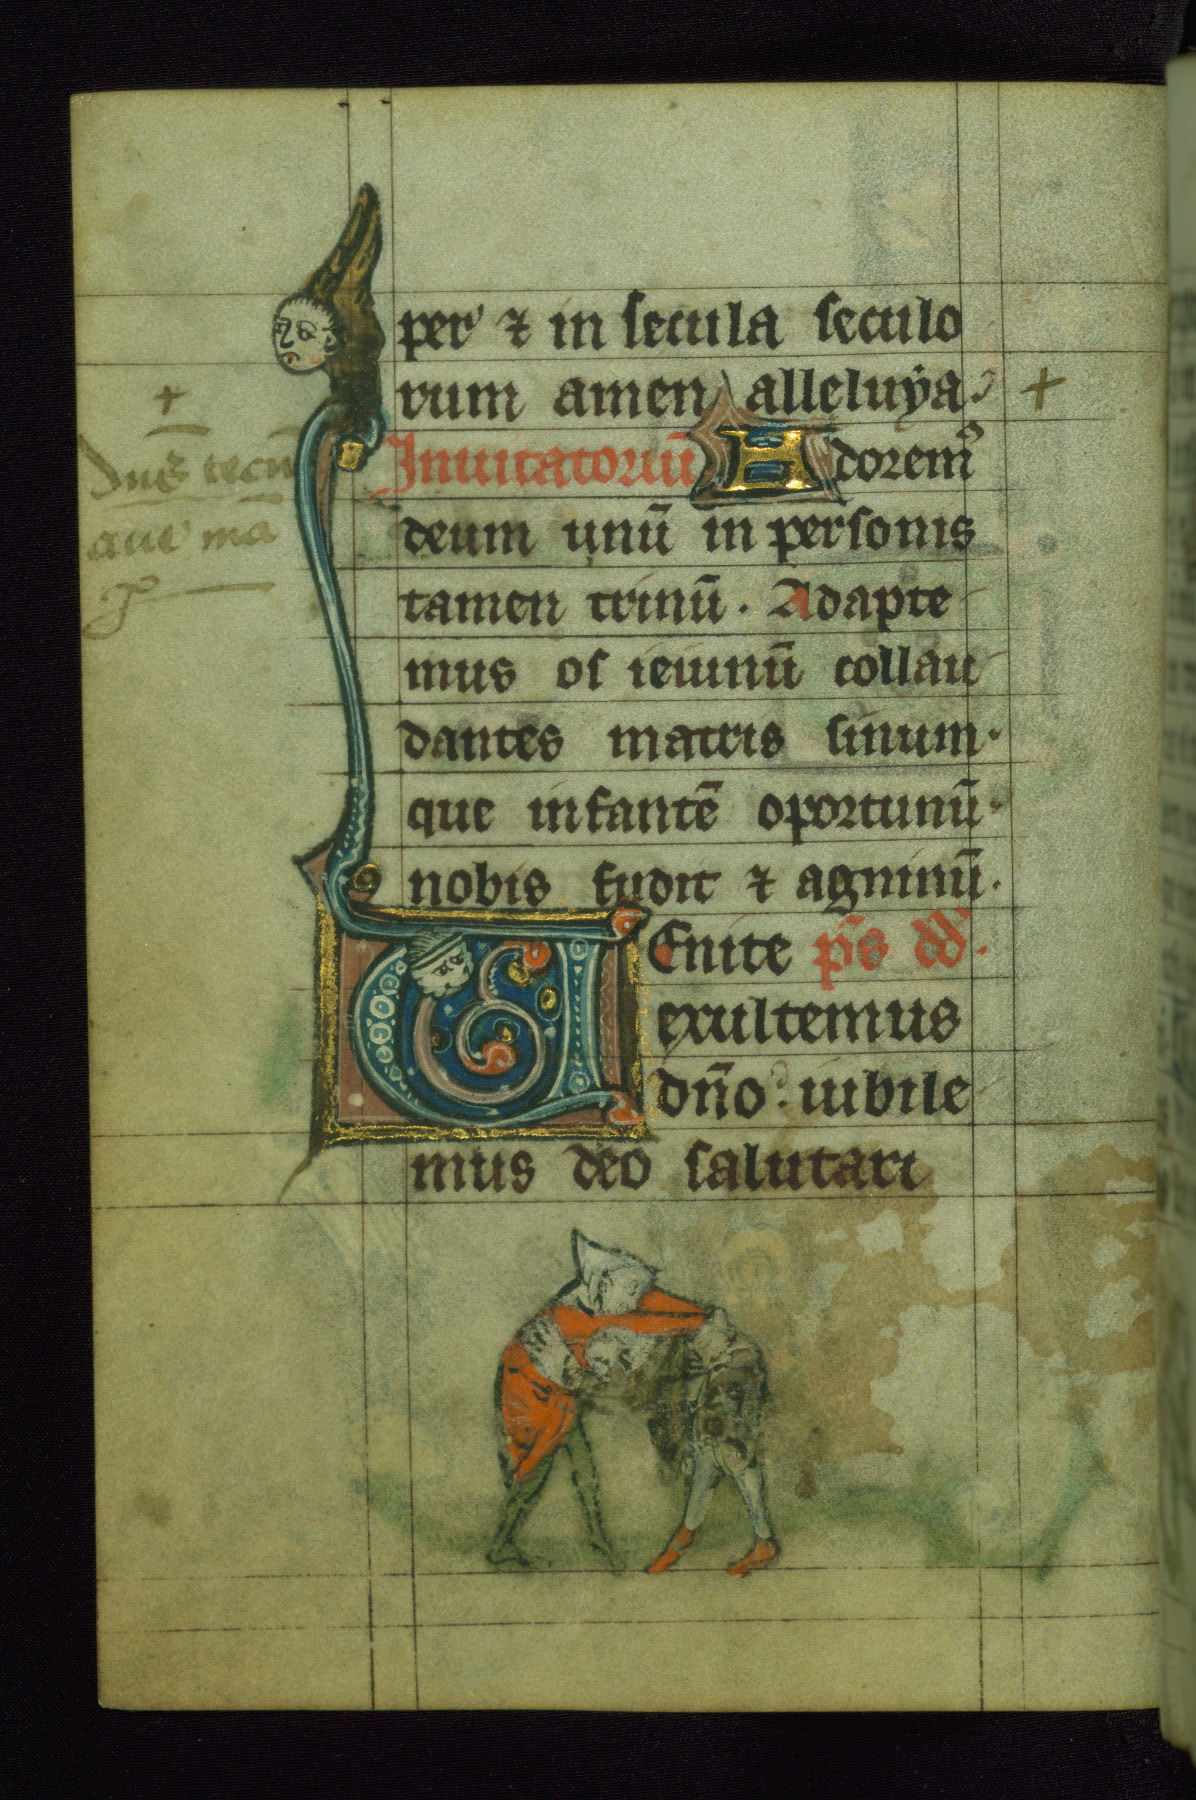 per et in secula seculo
rum amen alleluya.
Inuitatoriū Adorem᷑
deum unū in personis
tamen trinū. Adapte
mus os ieiunū collau
dantes matris sinum.
que infantē oportunū.
nobis fudit et agninū.
VEnite ps̄ dd̄.
exultemus
dn̄o: iubile
mus deo salutari
+
dn̄s tecū
aue ma
+